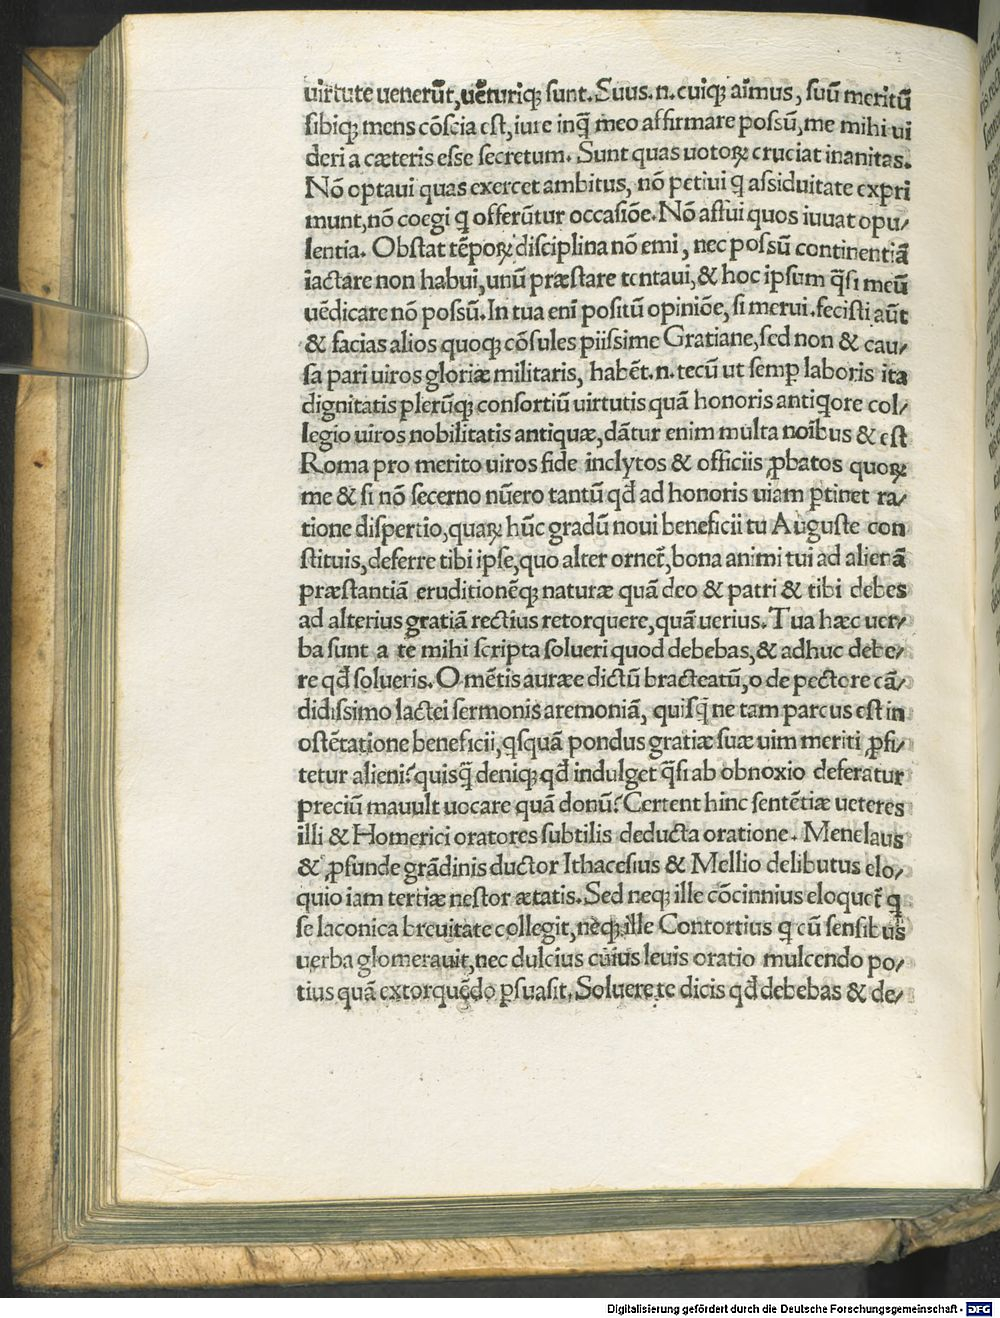 uirtute uenerūt, uēturiqꝫ sunt. Suus. n. cuiqꝫ aīmus, suū meritū
sibiqꝫ mens cōscia est, iure inq̄ meo affirmare possū, me mihi ui
deri a cæteris esse secretum. Sunt quas uotoꝝ cruciat inanitas.
Nō optaui quas exercet ambitus, nō petiui q̄ assiduitate expri
munt, nō coegi q̄ offerūtur occasiōe. Nō affui quos iuuat opu/
lentia. Obstat tēpoꝝ disciplina nō emi, nec possū continentiā
iactare non habui, unū præstare tentaui, & hoc ipsum q̄si meū
uēdicare nō possū. In tua enī positū opiniōe, si merui. fecisti aūt
& facias alios quoqꝫ cōsules piissime Gratiane, sed non & cau/
sa pari uiros gloriæ militaris, habēt. n. tecū ut semꝑ laboris ita
dignitatis plerūqꝫ consortiū uirtutis quā honoris antiq̄ore col/
legio uiros nobilitatis antiquæ, dātur enim multa noībus & est
Roma pro merito uiros fide inclytos & officiis ꝓbatos quoꝝ
me & si nō secerno nūero tantū qđ ad honoris uiam ꝑtinet ra/
tione dispertio, quaꝝ hūc gradū noui beneficii tu Auguste con
stituis, deferre tibi ipse, quo alter ornet̄, bona animi tui ad alienā
præstantiā eruditionēqꝫ naturæ quā deo & patri & tibi debes
ad alterius gratiā rectius retorquere, quā uerius. Tua hæc uer/
ba sunt a te mihi scripta solueri quod debebas, & adhuc debe/
re qđ solueris. O mētis auræe dictū bracteatū, o de pectore cā/
didissimo lactei sermonis aremoniā, quisq̄ ne tam parcus est in
ostētatione beneficii, q̄squā pondus gratiæ suæ uim meriti ꝓfi/
tetur alieni? quisq̄ deniqꝫ qđ indulget q̄si ab obnoxio deferatur
preciū mauult uocare quā donū? Certent hinc sentētiæ ueteres
illi & Homerici oratores subtilis deducta oratione. Menelaus
& ꝓfunde grādinis ductor Ithacesius & Mellio delibutus elo/
quio iam tertiæ nestor ætatis. Sed neqꝫ ille cōcinnius eloquet̄ q̄
se laconica breuitate collegit, neqꝫ ille Contortius q̄ cū sensibus
uerba glomerauit, nec dulcius cuius leuis oratio mulcendo po/
tius quā extorquēdo ꝑsuasit. Soluere te dicis qđ debebas & de/
Digitalisierung gefördert durch die Deutsche Forschungsgemeinschaft - DFG